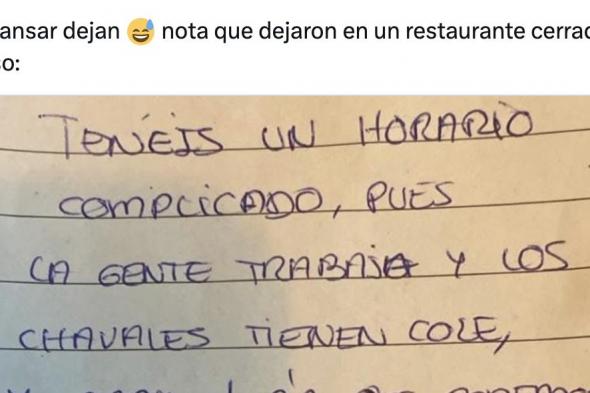 ansar dejan 😅 nota que dejaron en un restaurante cerrad
o:
TENÉIS UN HORARIO
COMPLICADO, PUES
LA GENTE TRABAJA Y LOS
CHAVALES TIENEN COLE,